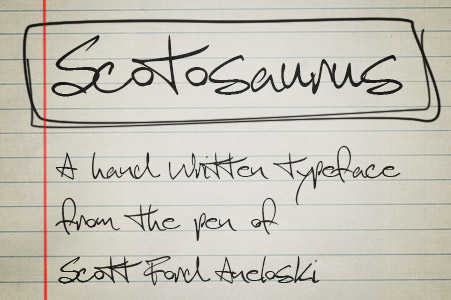 Scotosaurus
A hand written typeface
from the pen of
Scott Ford Aneloski